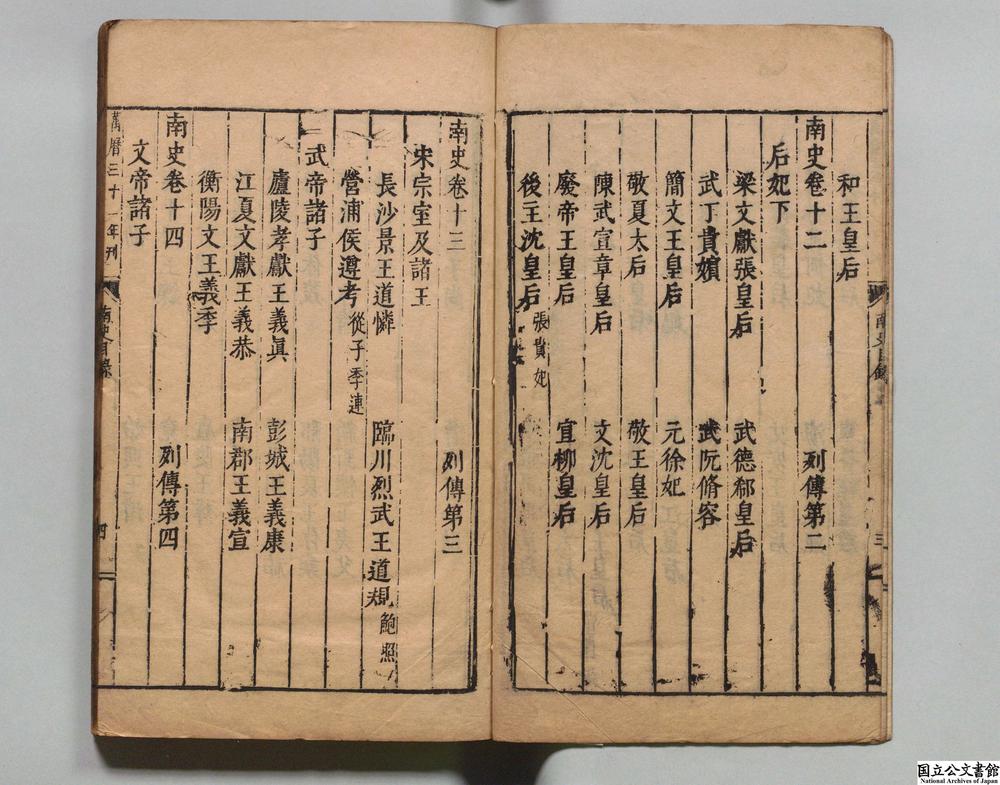 和王皇后
南史卷十二 列傳第二
后妃下
梁文獻張皇后 武德郗皇后
武丁貴嬪 武阮脩容
簡文王皇后 元徐妃
敬夏太后 敬王皇后
陳武宣章皇后 文沈皇后
廢帝王皇后 宣柳皇后
後主沈皇后 張貴妃
南史卷十三 列傳第三
宋宗室及諸王
長沙景王道憐 臨川烈武王道規 鮑照
營浦侯遵考 從子季連
武帝諸子
廬陵孝獻王義真 彭城王義康
江夏文獻王義恭 南郡王義宣
衡陽文王義季
南史卷十四 列傳第四
文帝諸子
萬曆三十一年刊
南史目錄
四
国立公文書館
National Archives of Japan